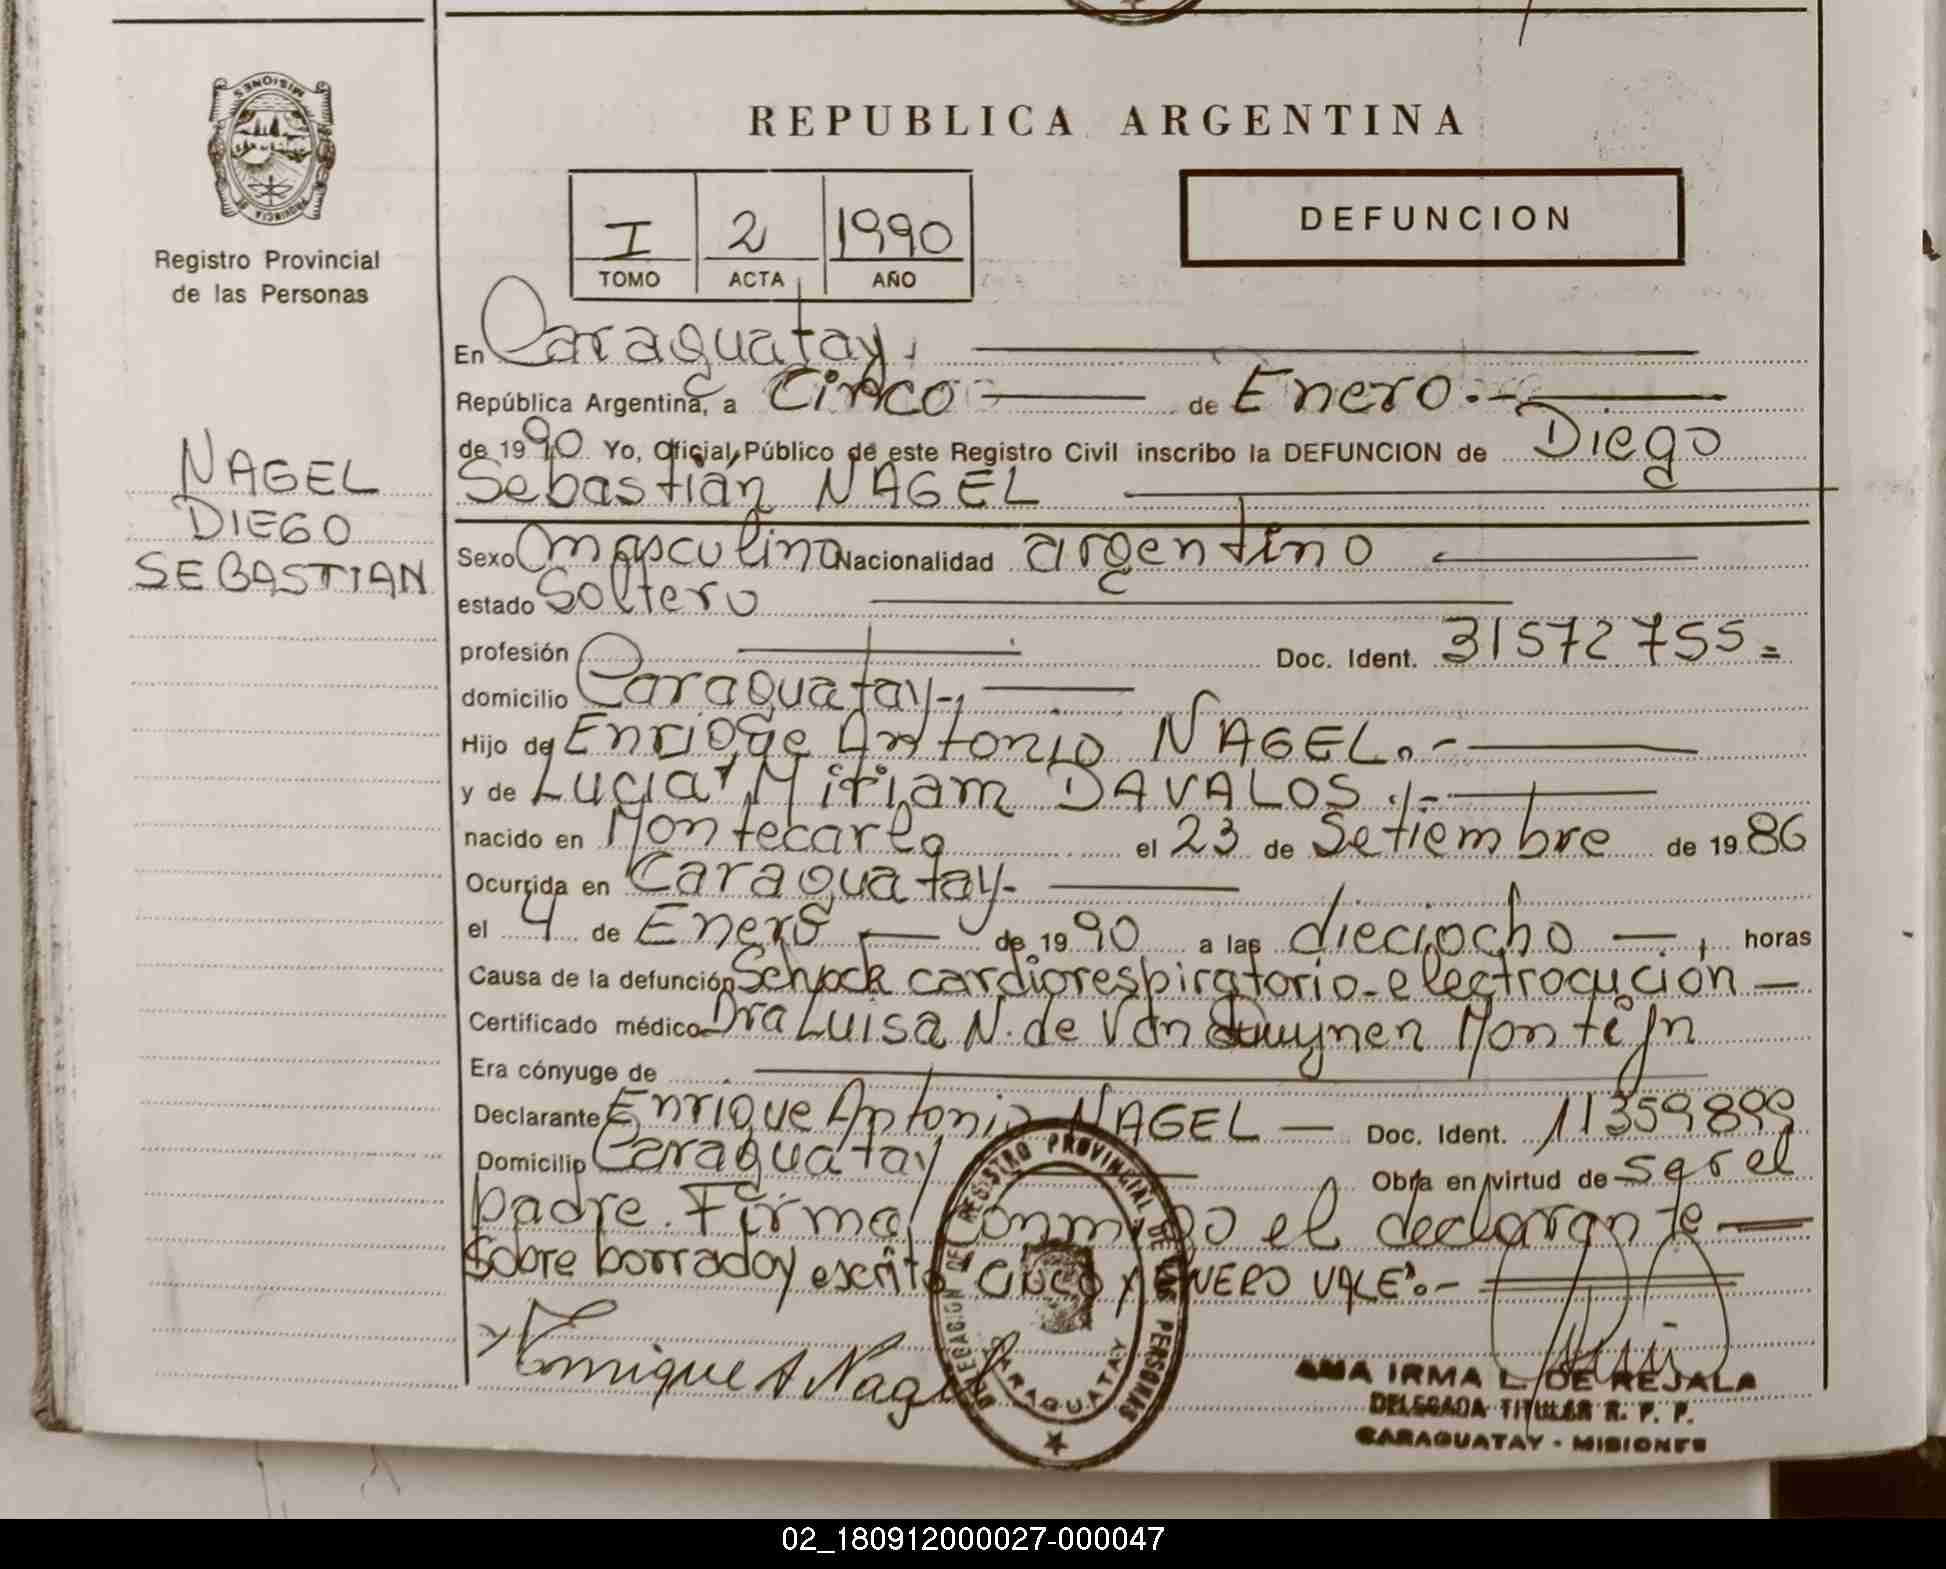 MISIONES
PROVINCIA DE
Registro Provincial
de las Personas
NAGEL
DIEGO
SEBASTIAN
REPUBLICA ARGENTINA
I 2 1990
TOMO ACTA AÑO
DEFUNCION
En Caraguatay,
República Argentina, a Cinco de Enero.-
de 1990 Yo, Oficial Público de este Registro Civil inscribo la DEFUNCION de Diego
Sebastián NAGEL
Sexo masculino Nacionalidad argentino
estado Soltero
profesión Doc. Ident. 31572755=
domicilio Caraguatay-,
Hijo de Enrique Antonio NAGEL.-
y de Lucia Miriam DAVALOS.-
nacido en Montecarlo el 23 de Setiembre de 1986
Ocurrida en Caraguatay-
el 4 de Enero de 1990 a las dieciocho , horas
Causa de la defunción Schock cardiorespiratorio-electrocución
Certificado médico Dra Luisa N. de Van Duynen Montijn
Era cónyuge de
Declarante Enrique Antonio NAGEL Doc. Ident. 11359899
Domicilio Caraguatay Obra en virtud de ser el
padre. Firma conmigo el declarante
Sobre borrado y escrito "Cinco y ENERO VALE".-
Enrique A Nagel
DELEGACION DEL REGISTRO PROVINCIAL DE LAS PERSONAS
CARAGUATAY
ANA IRMA L. DE REJALA
DELEGADA TITULAR R. P. P.
CARAGUATAY - MISIONES
02_180912000027-000047